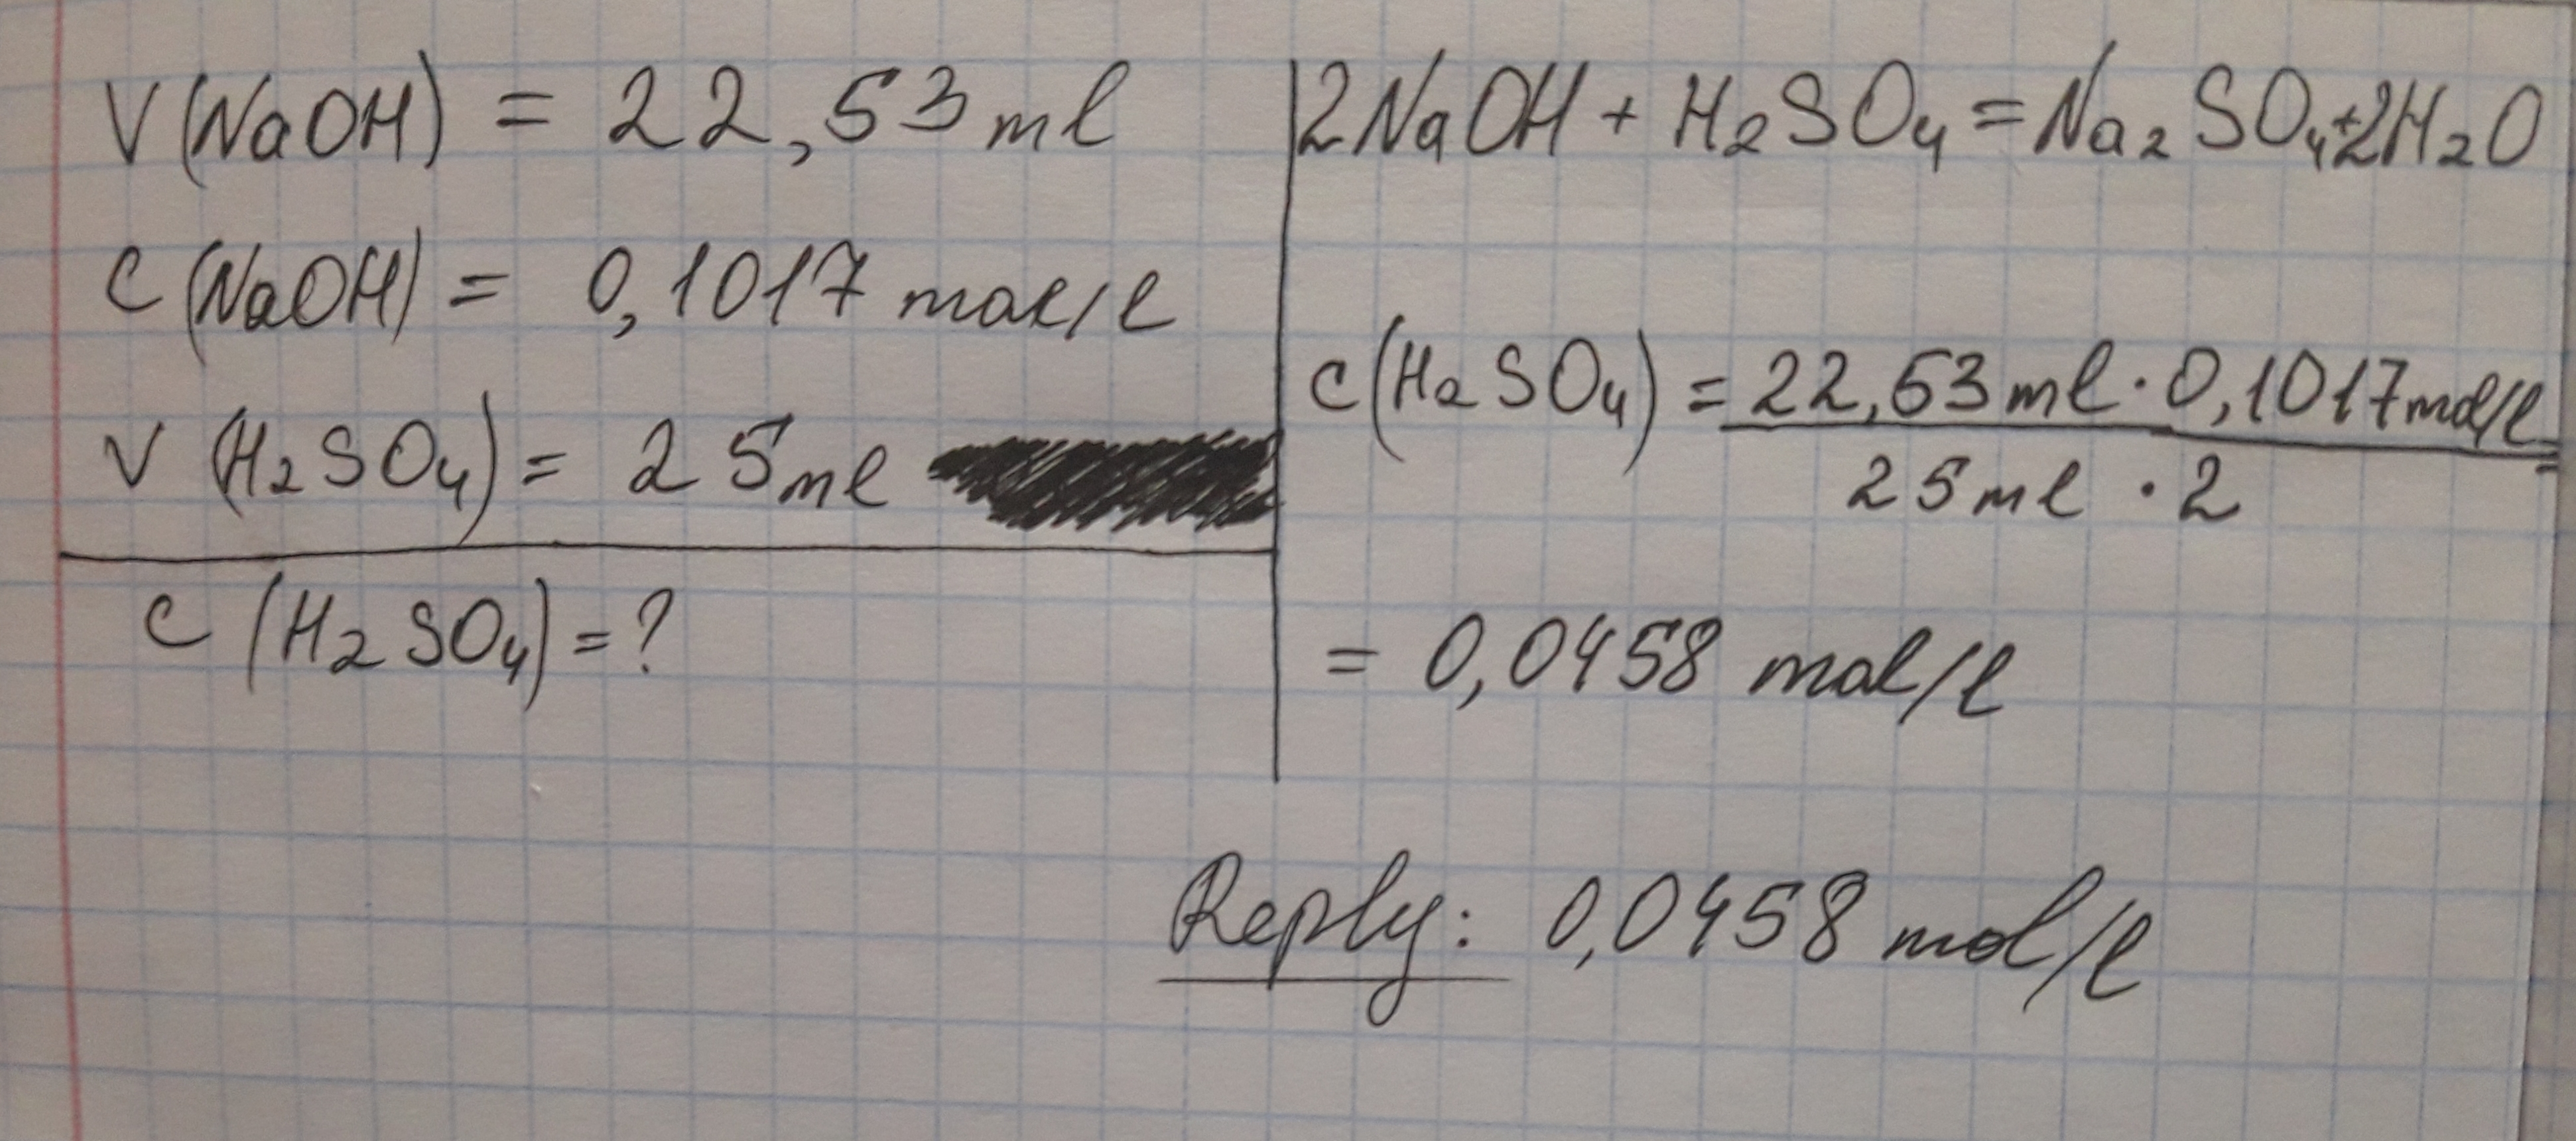 V (NaOH) = 22,53 ml
C (NaOH) = 0,1017 mol/l
V (H₂SO₄) = 25 ml
C (H₂SO₄) = ?
2NaOH + H₂SO₄ = Na₂SO₄ + 2H₂O
C (H₂SO₄) = 22,53 ml · 0,1017 mol/l =
25 ml · 2
= 0,0458 mol/l
Reply: 0,0458 mol/l